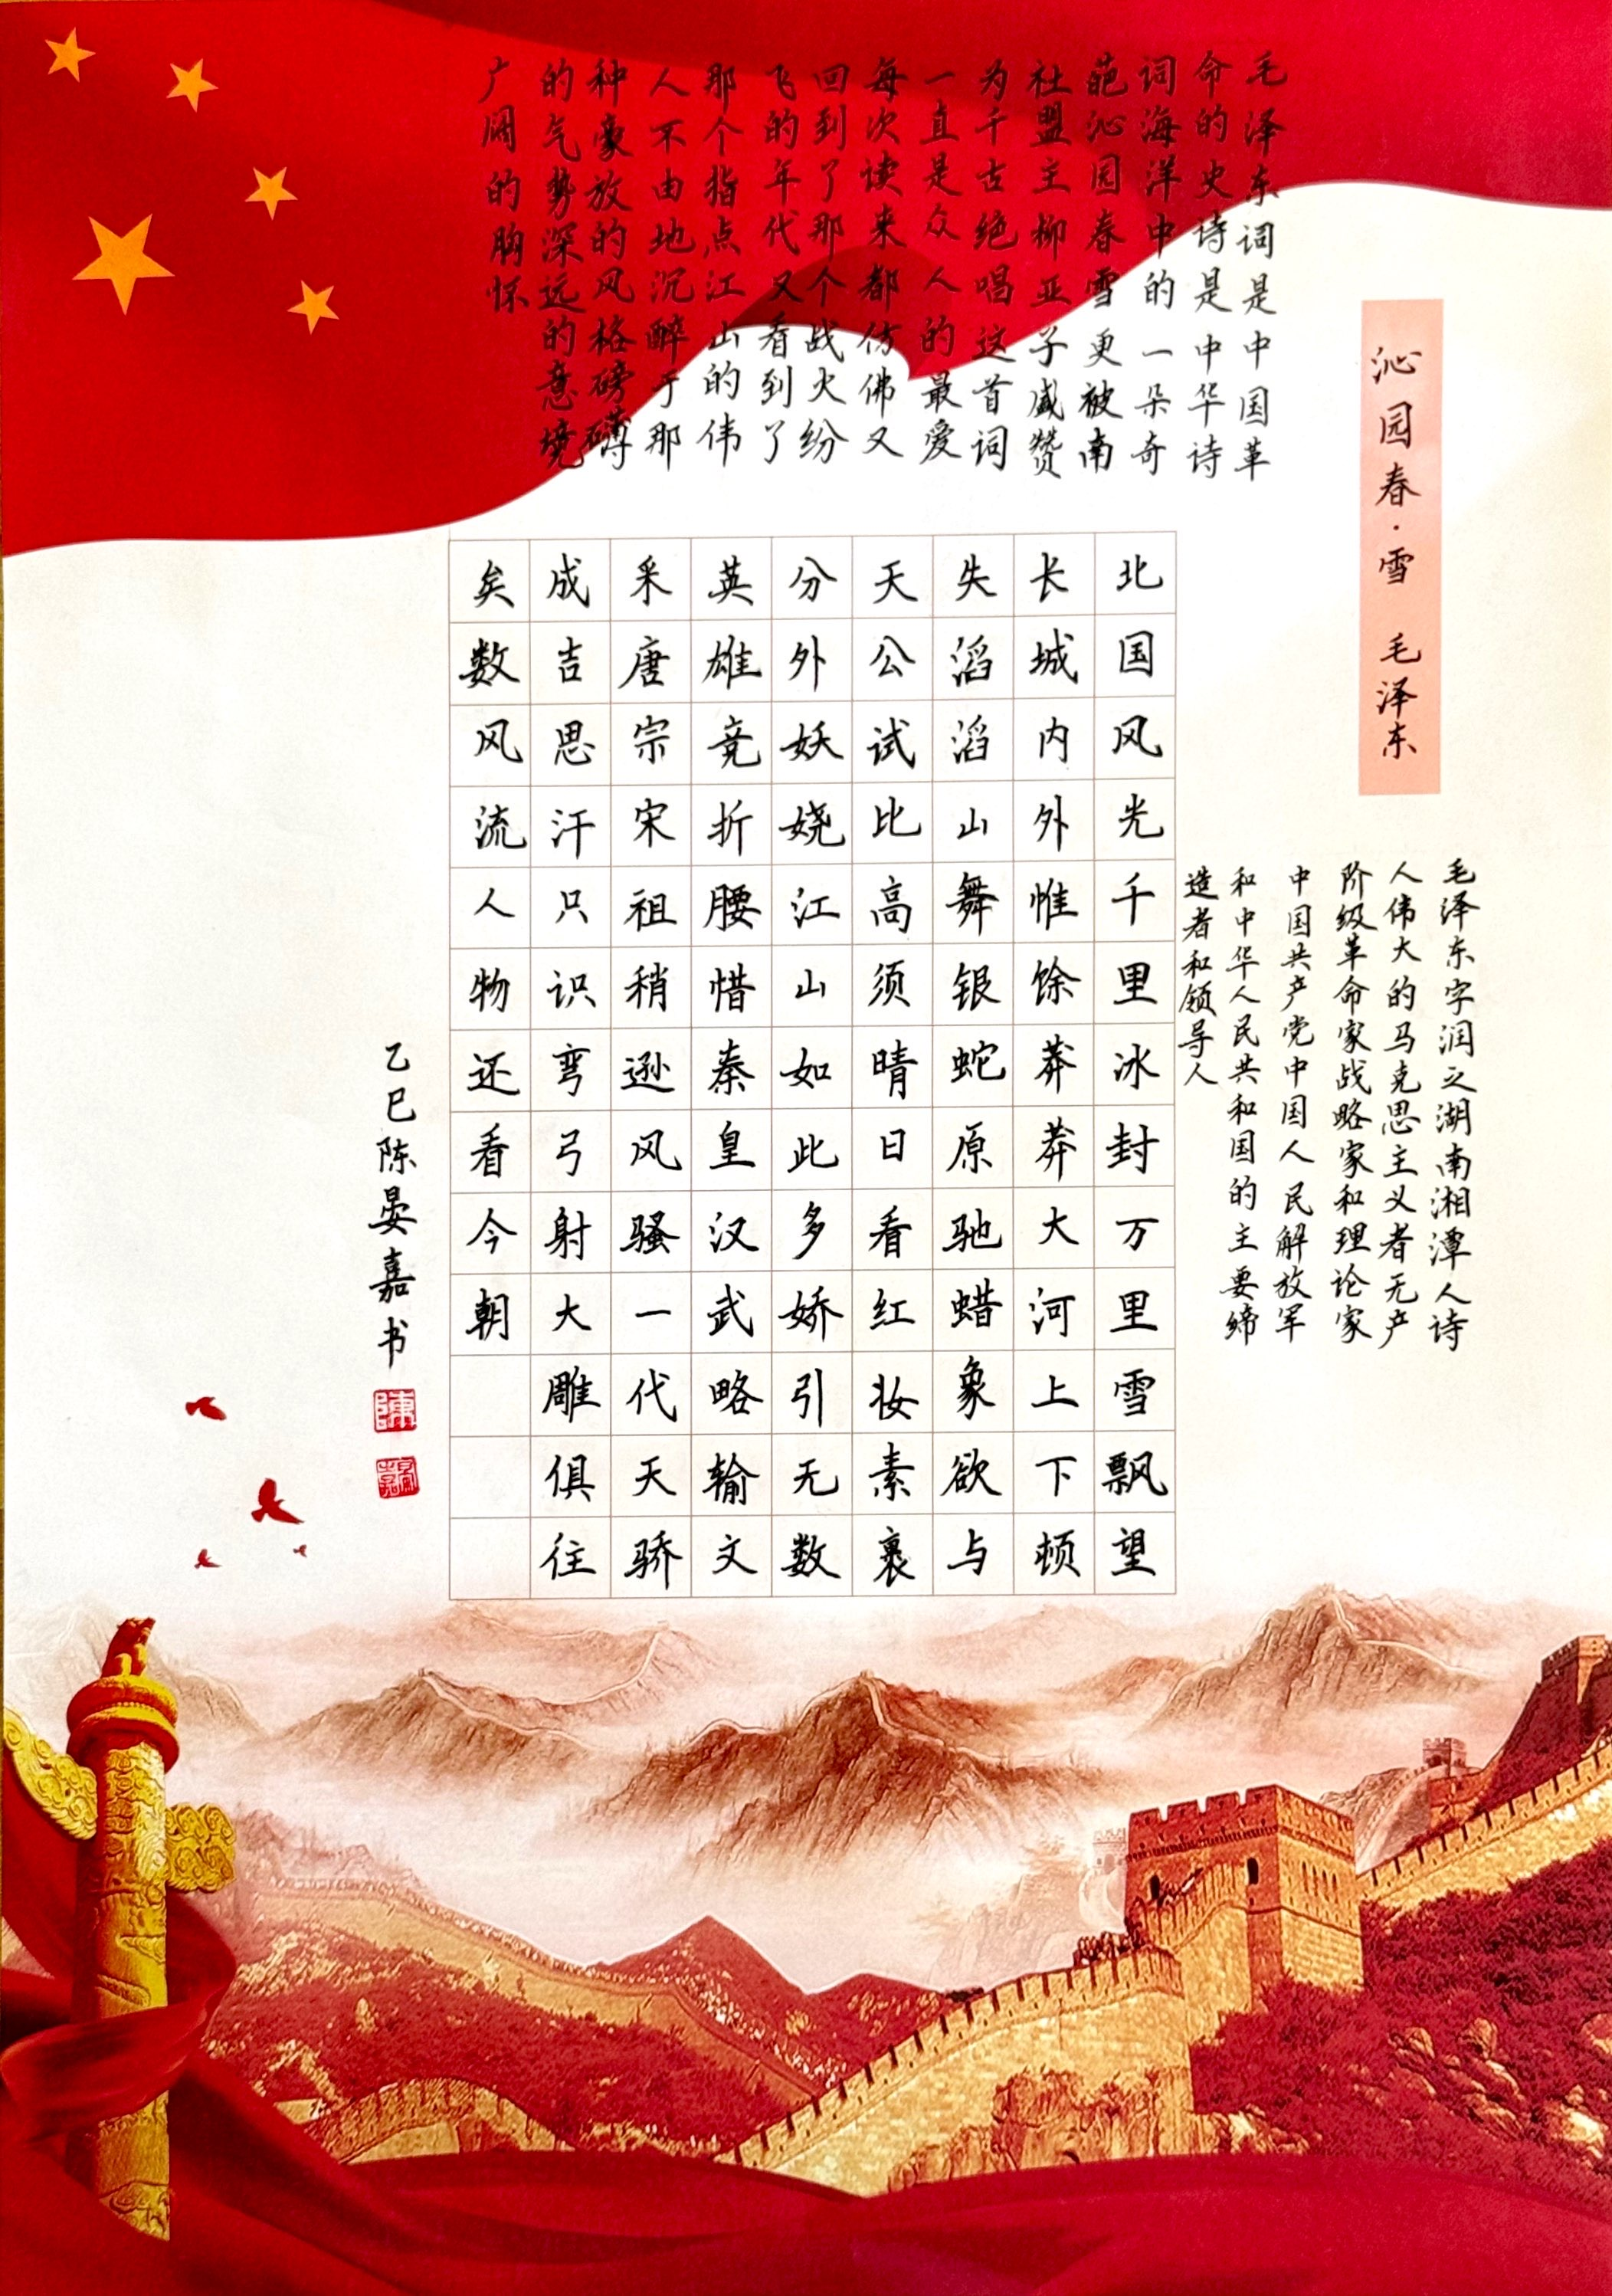 沁园春·雪 毛泽东
毛泽东词是中国革
命的史诗是中华诗
词海洋中的一朵奇
葩沁园春雪更被南
社盟主柳亚子盛赞
为千古绝唱这首词
一直是众人的最爱
每次读来都仿佛又
回到了那个战火纷
飞的年代又看到了
那个指点江山的伟
人不由地沉醉于那
种豪放的风格磅礴
的气势深远的意境
广阔的胸怀
毛泽东字润之湖南湘潭人诗
人伟大的马克思主义者无产
阶级革命家战略家和理论家
中国共产党中国人民解放军
和中华人民共和国的主要缔
造者和领导人
北国风光千里冰封万里雪飘望
长城内外惟馀莽莽大河上下顿
失滔滔山舞银蛇原驰蜡象欲与
天公试比高须晴日看红妆素裹
分外妖娆江山如此多娇引无数
英雄竞折腰惜秦皇汉武略输文
采唐宗宋祖稍逊风骚一代天骄
成吉思汗只识弯弓射大雕俱往
矣数风流人物还看今朝
乙巳陈晏嘉书
陳